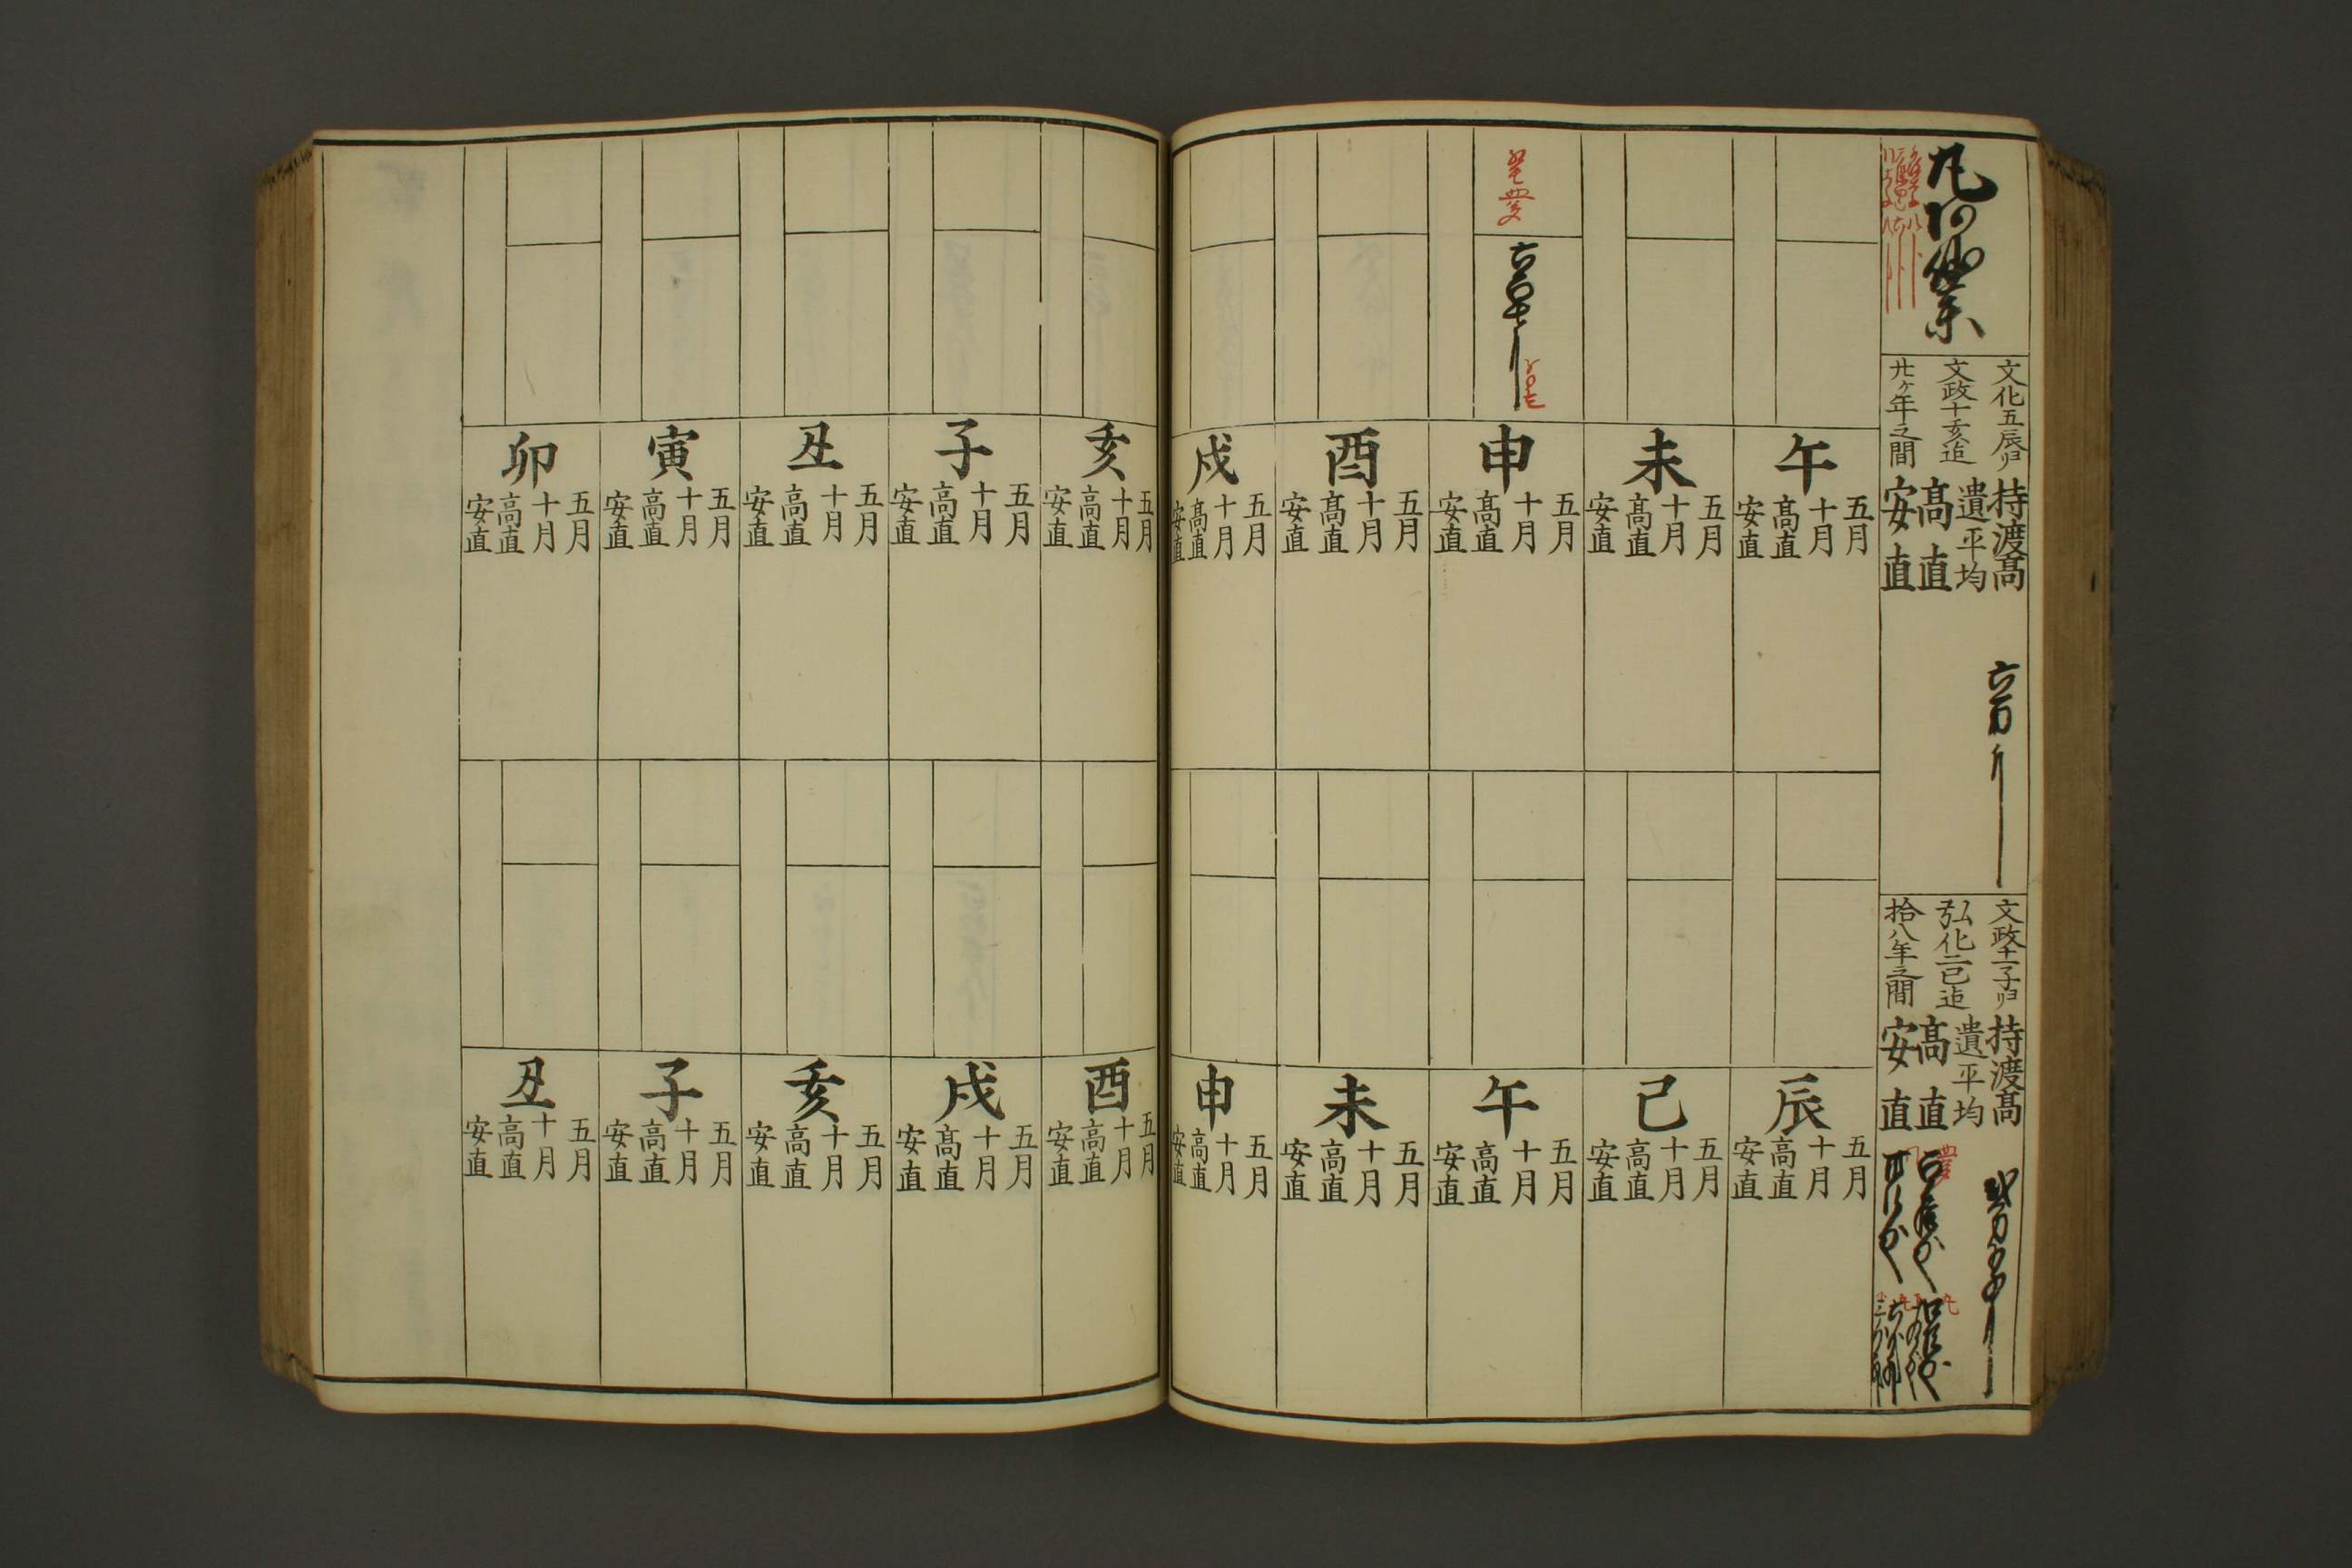 文化五辰ヨリ
文政十亥迄
廿ヶ年之間
持渡髙
遺平均
髙直
安直
文政十一子ヨリ
弘化二巳迄
拾八年之間
持渡髙
遺平均
髙直
安直
午
五月
十月
髙直
安直
未
五月
十月
髙直
安直
申
五月
十月
髙直
安直
酉
五月
十月
髙直
安直
戌
五月
十月
髙直
安直
辰
五月
十月
高直
安直
巳
五月
十月
高直
安直
午
五月
十月
高直
安直
未
五月
十月
高直
安直
申
五月
十月
高直
安直
亥
五月
十月
高直
安直
子
五月
十月
高直
安直
丑
五月
十月
高直
安直
寅
五月
十月
高直
安直
卯
五月
十月
高直
安直
酉
五月
十月
高直
安直
戌
五月
十月
髙直
安直
亥
五月
十月
高直
安直
子
五月
十月
高直
安直
丑
五月
十月
高直
安直